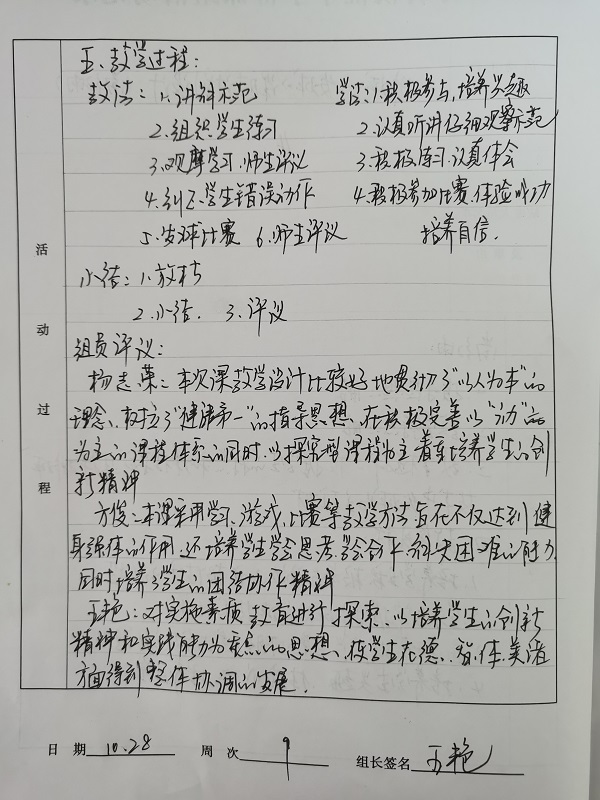 五、教学过程：
教法：1.讲解示范 学法：1.积极参与，培养兴趣
2.组织学生练习 2.认真听讲仔细观察示范
3.观摩学习.师生评议 3.积极练习.认真体会
4.纠正学生错误动作 4.积极参加比赛.体验成功
5.发球比赛 6.师生评议 培养自信.
小结：1.放松
2.小结. 3.评议
组员评议：
杨志荣：本次课教学设计比较好地贯彻了"以人为本"的
理念、树立了"健康第一"的指导思想.在积极完善以"动"
为主的课程体系的同时.以探究型课程为主着重培养学生的创
新精神
方俊：本课采用学习、游戏、比赛等教学方法旨在不仅达到健
身强体的作用.还培养学生学会思考.学会合作.解决困难的能力.
同时培养了学生的团结协作精神
王艳：对实施素质教育进行探索.以培养学生的创新
精神和实践能力为重点的思想、使学生在德、智、体、美诸
方面得到整体协调的发展.
活动过程
日 期 10.28 周 次 9 组长签名 王艳